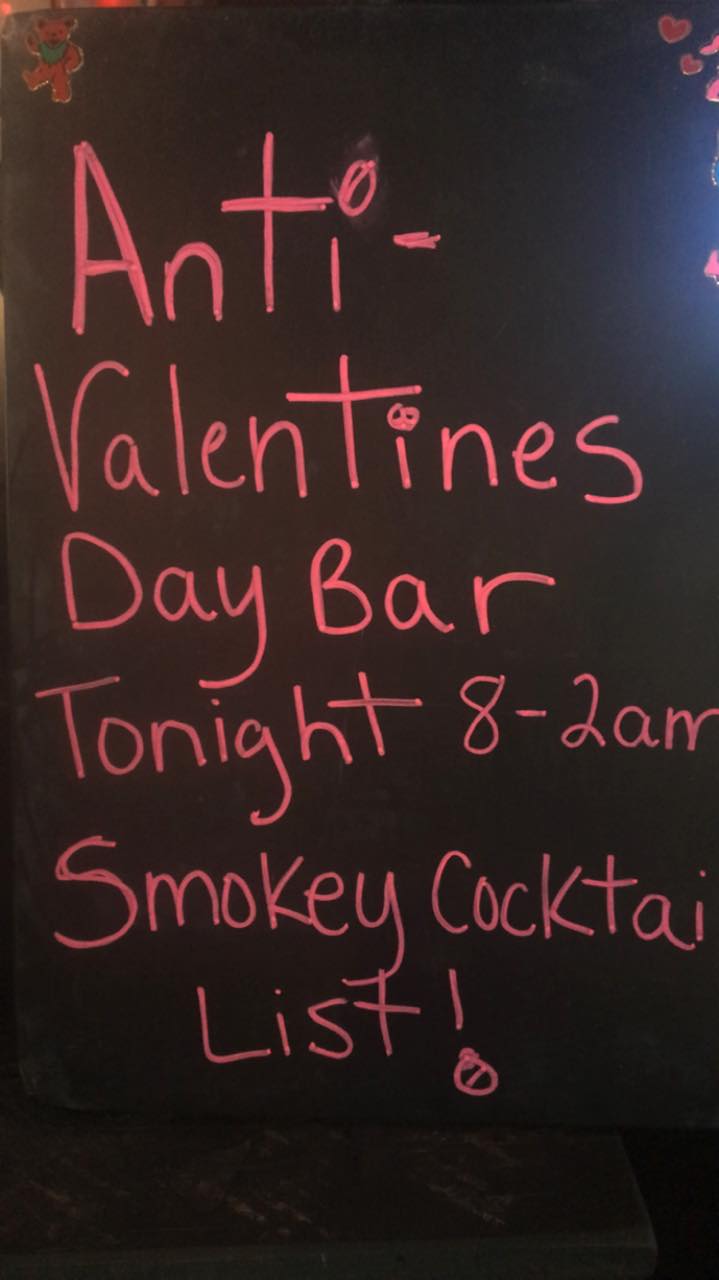 Anti-
Valentines
Day Bar
Tonight 8-2am
Smokey Cocktai
List!